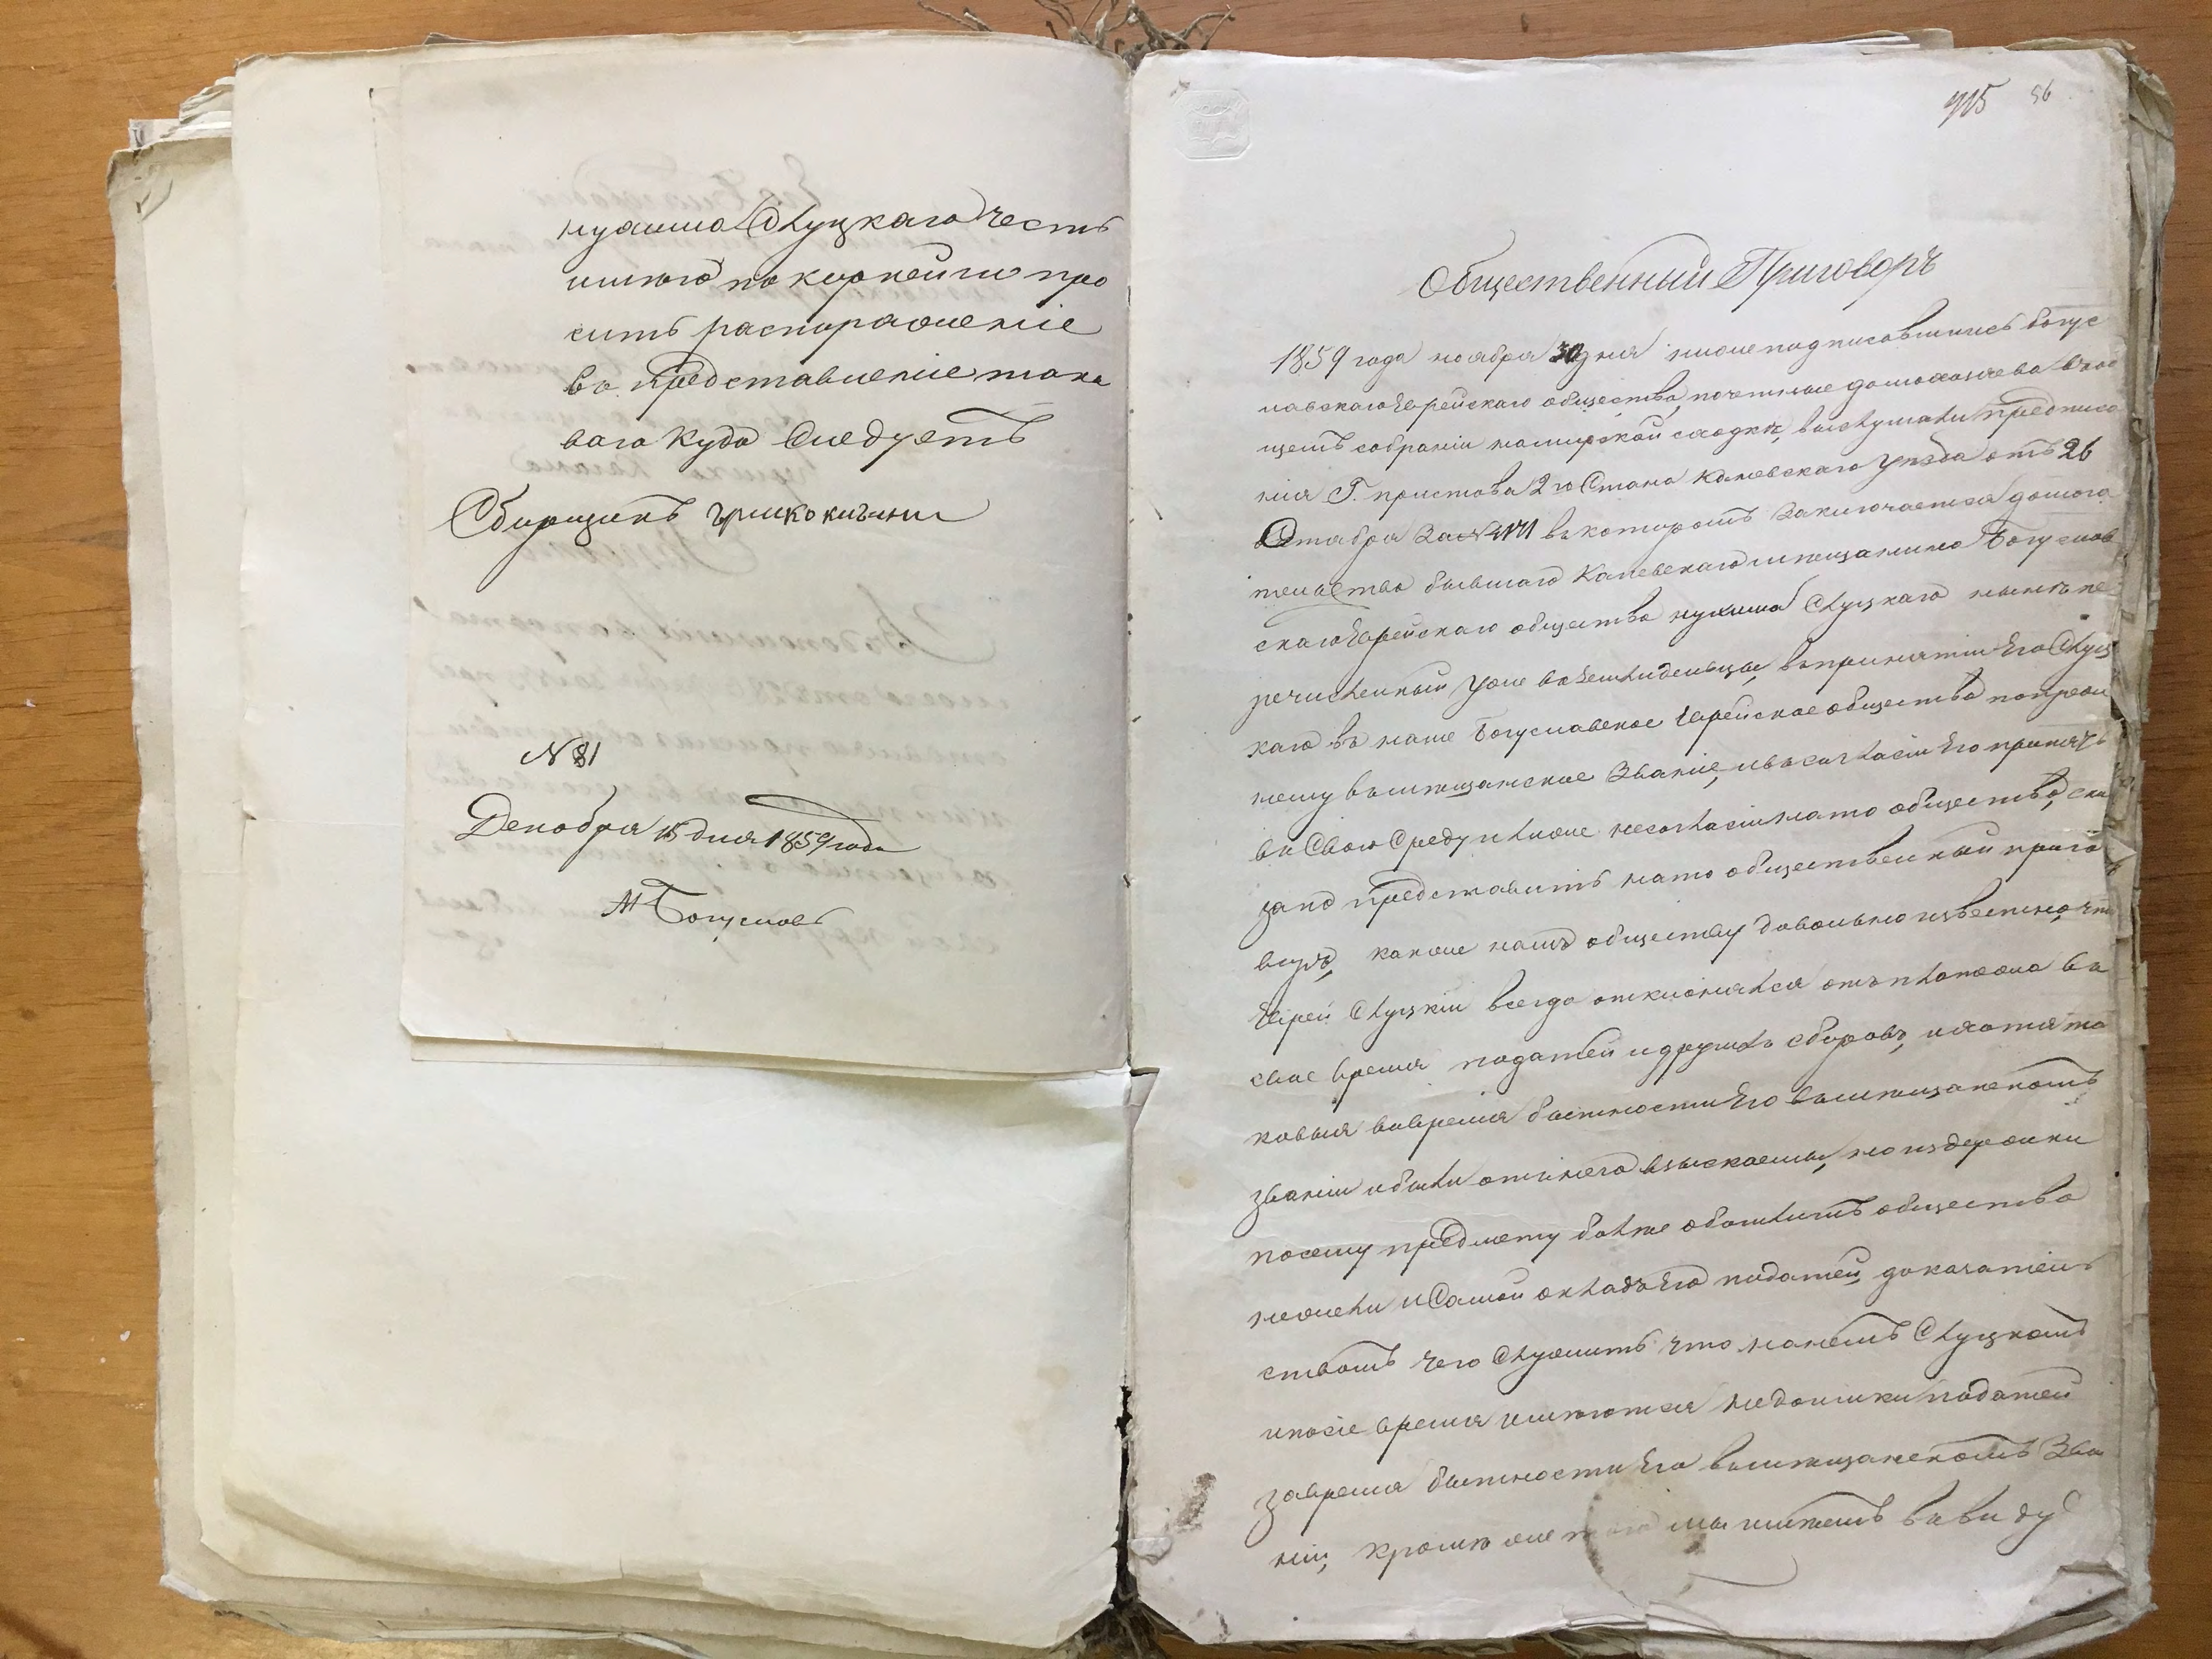 нухима Слуцкаго честь
имѣю покорнейше про
сить распоряженіе
въ представленіе тако
ваго куда следуетъ
Сборщикъ
N 81
Декабря 15 дня 1859 года
М Богуславъ
915 56
Общественный Приговоръ
1859 года ноября 30 дня нижеподписавшиесь богус
лавскаго Еврейскаго общества, почетные домохозяева в об
щемъ собраніи на мирской сходкѣ, выслушали предписа
ніе Г. пристава 2го Стана Каневскаго уѣзда отъ 26
Октября за № въ которомъ заключается домога
тельство бывшаго Каневскаго мѣщанина Богуслав
скаго Еврейскаго общества нухима Слуцкаго нынѣ пе
речисленный уже въ земледельцы, въ принятіи Его Слуц
каго въ наше Богуславское Еврейское общество по преж
нему въ мѣщанское званіе, и въ согласіи Его принять
въ Свою Среду или же несогласіи на то общества, ска
зано представить на то общественный приго
воръ, какже нашъ обществу довольно извѣстно, что
Еврей Слуцкій всегда отклонялся отъ платежа въ
свое время податей и другихъ сборовъ, и хотя та
ковыя во время бытности Его въ мѣщанскомъ
званіи и были отъ него взыскаемы, но издержки
по сему предмету болѣе обошлись общества
нежели и Самой окладъ Его податей, доказатель
ствомъ чего Служитъ что на немъ Слуцкомъ
и по сіе время имѣются недоимки податей
за время бытности Его въ мѣщанскомъ Зва
ніи, кромѣ же того мы имѣемъ въ виду